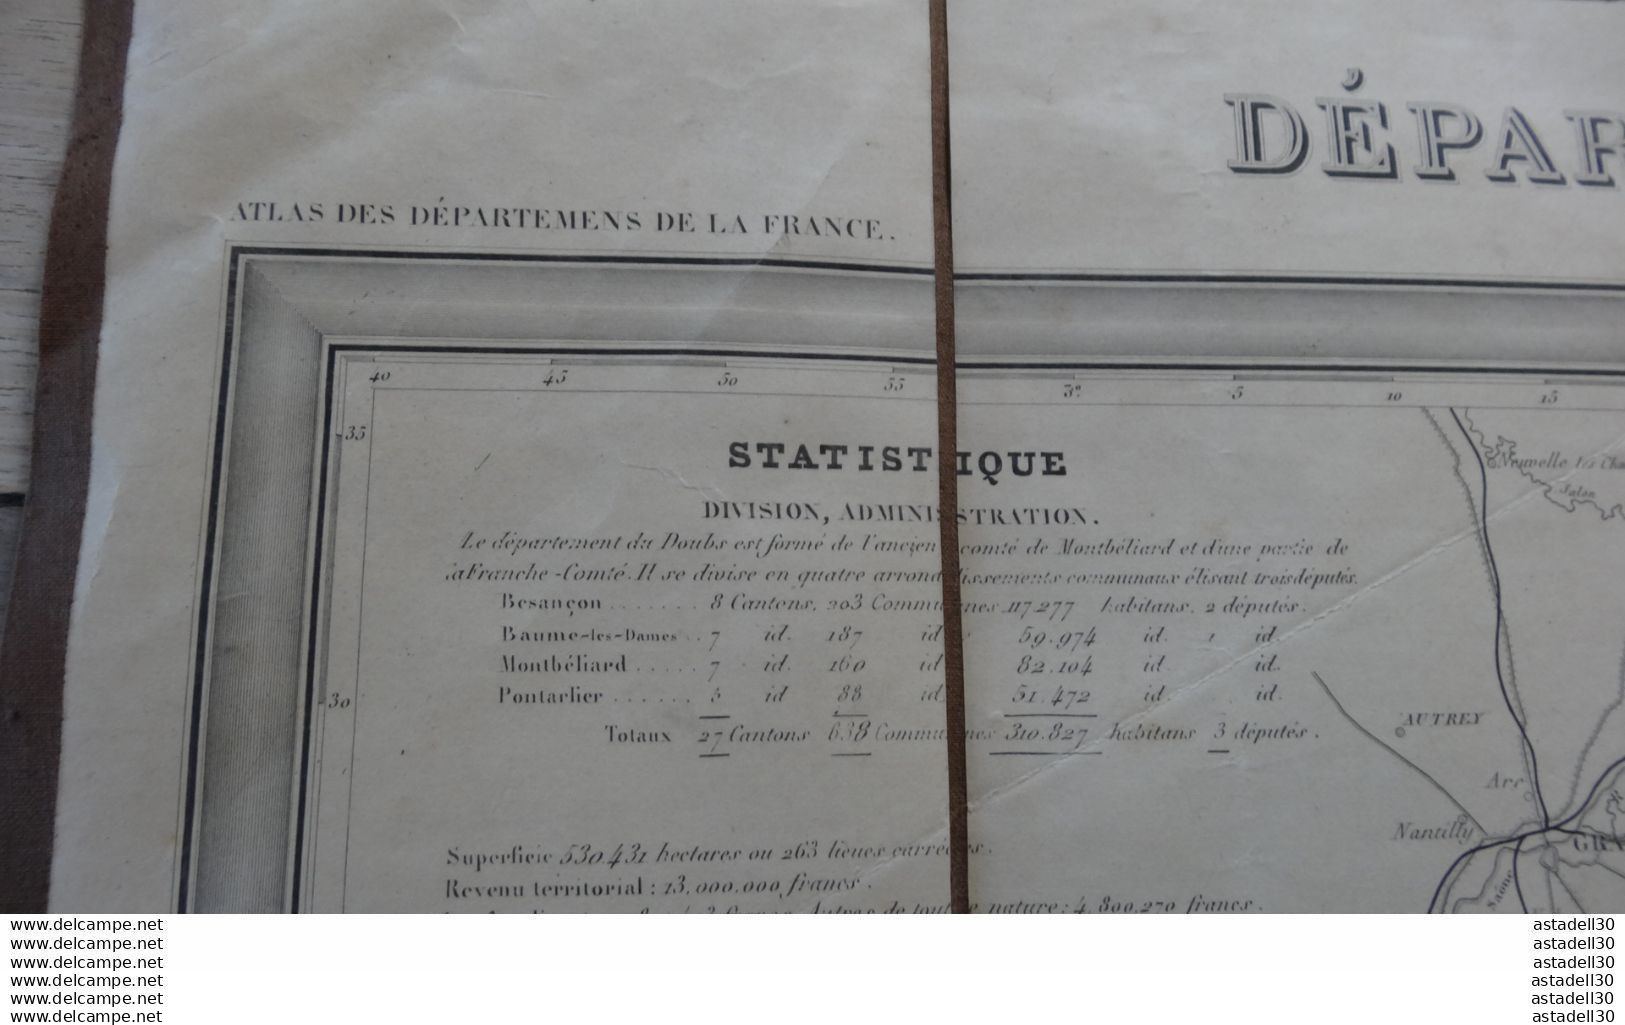 DÉPAR
ATLAS DES DÉPARTEMENS DE LA FRANCE.
40 45 50 55 3° 5 10 15
35
STATISTIQUE
DIVISION, ADMINISTRATION.
Le département du Doubs est formé de l'ancien comté de Montbéliard et d'une partie de
la Franche-Comté. Il se divise en quatre arrondissements communaux élisant trois députés.
Besançon ....... 8 Cantons, 203 Communes 117.277 habitans, 2 députés.
Baume-les-Dames .. 7 id. 187 id. 59.974 id. 1 id.
Montbéliard ..... 7 id. 160 id. 82.104 id. id.
Pontarlier ...... 5 id. 88 id. 51.472 id. id.
Totaux 27 Cantons 638 Communes 310.827 habitans 3 députés.
30
Superficie 530.431 hectares ou 263 lieues carrées.
Revenu territorial : 13.000.000 francs.
Autres de toute nature : 4.800.270 francs.
Neuvelle les
Salon
AUTREY
Arc
Nantilly
GRA
Saône
www.delcampe.net astadell30
www.delcampe.net astadell30
www.delcampe.net astadell30
www.delcampe.net astadell30
www.delcampe.net astadell30
www.delcampe.net astadell30